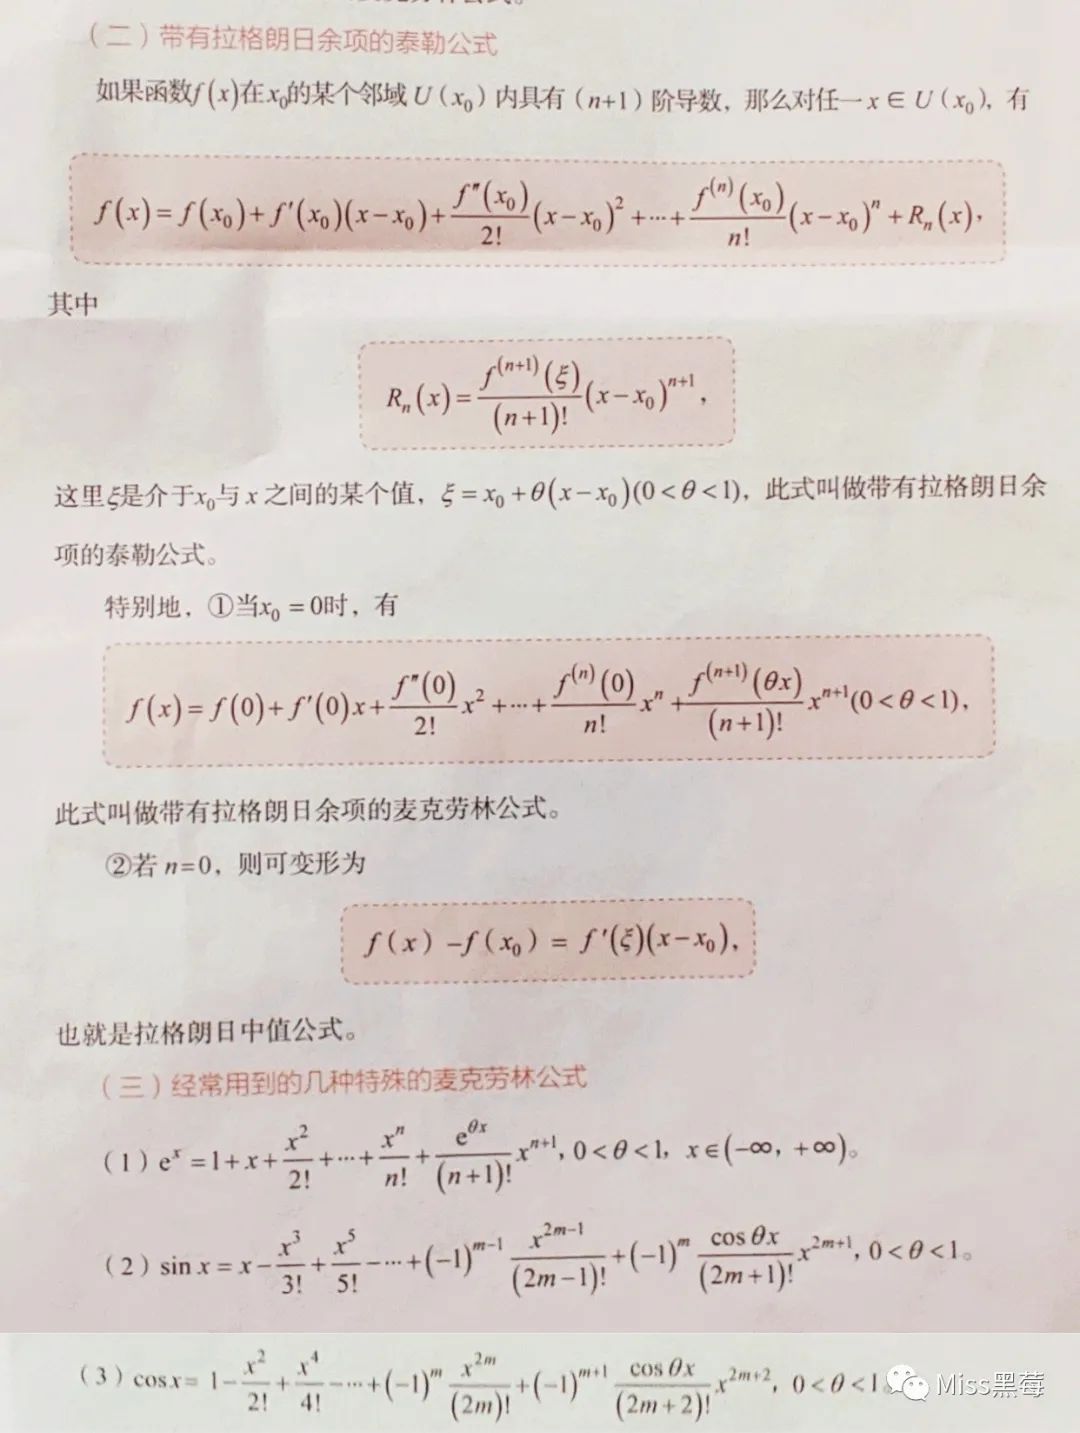 （二）带有拉格朗日余项的泰勒公式
如果函数f(x)在x₀的某个邻域 U（x₀）内具有（n+1）阶导数，那么对任一 x ∈ U（x₀），有
f(x)=f(x₀)+f′(x₀)(x−x₀)+f″(x₀)/2!(x−x₀)²+···+f⁽ⁿ⁾(x₀)/n!(x−x₀)ⁿ+Rₙ(x)，
其中
Rₙ(x)=f⁽ⁿ⁺¹⁾(ξ)/(n+1)!(x−x₀)ⁿ⁺¹，
这里ξ是介于x₀与 x 之间的某个值，ξ=x₀+θ(x−x₀)(0<θ<1)，此式叫做带有拉格朗日余
项的泰勒公式。
特别地，①当x₀=0时，有
f(x)=f(0)+f′(0)x+f″(0)/2!x²+···+f⁽ⁿ⁾(0)/n!xⁿ+f⁽ⁿ⁺¹⁾(θx)/(n+1)!xⁿ⁺¹(0<θ<1)，
此式叫做带有拉格朗日余项的麦克劳林公式。
②若 n=0，则可变形为
f（x）−f（x₀）= f′(ξ)(x−x₀)，
也就是拉格朗日中值公式。
（三）经常用到的几种特殊的麦克劳林公式
（1）eˣ=1+x+x²/2!+···+xⁿ/n!+e^(θx)/(n+1)!xⁿ⁺¹，0<θ<1，x∈(−∞，+∞)。
（2）sin x=x−x³/3!+x⁵/5!−···+(−1)^(m−1) x^(2m−1)/(2m−1)!+(−1)^m cos θx/(2m+1)! x^(2m+1)，0<θ<1。
（3）cosx=1−x²/2!+x⁴/4!−···+(−1)^m x^(2m)/(2m)!+(−1)^(m+1) cos θx/(2m+2)! x^(2m+2)，0<θ<1
Miss黑莓